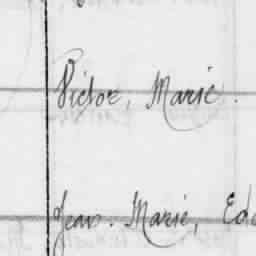 Victor, Marie.
Jean. Marie, Edo